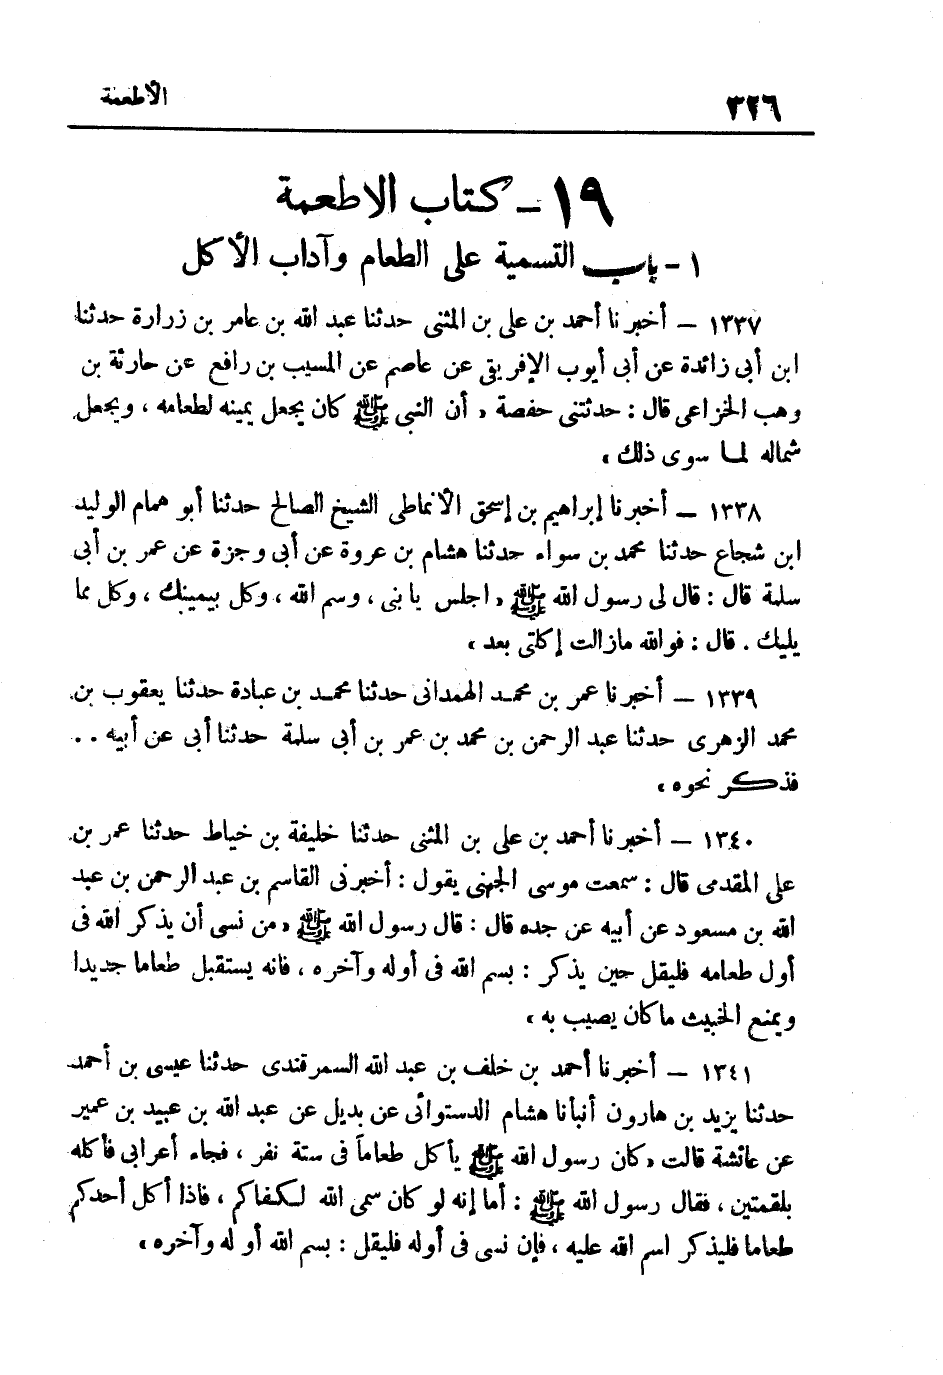 ٣٢٦ الأطعمة
١٩ - كتاب الاطعمة
١ - باب التسمية على الطعام وآداب الأكل
١٣٣٧ – أخبرنا أحمد بن على بن المثنى حدثنا عبد الله بن عامر بن زرارة حدثنا
ابن أبى زائدة عن أبى أيوب الإفريقى عن عاصم عن المسيب بن رافع عن حارثة بن
وهب الخزاعى قال : حدثتنى حفصة « أن النبى ﷺ كان يجعل يمينه لطعامه ، ويجعل
شماله لما سوى ذلك »
١٣٣٨ – أخبرنا إبراهيم بن إسحق الأنماطى الشيخ الصالح حدثنا أبو همام الوليد
ابن شجاع حدثنا محمد بن سواء حدثنا هشام بن عروة عن أبى وجزة عن عمر بن أبى
سلمة قال : قال لى رسول الله ﷺ « اجلس يا بنى ، وسم الله ، وكل بيمينك ، وكل مما
يليك . قال : فوالله مازالت إكلتى بعد »
١٣٣٩ – أخبرنا عمر بن محمد الهمدانى حدثنا محمد بن عبادة حدثنا يعقوب بن
محمد الزهرى حدثنا عبد الرحمن بن محمد بن عمر بن أبى سلمة حدثنا أبى عن أبيه . .
فذكر نحوه »
١٣٤٠ – أخبرنا أحمد بن على بن المثنى حدثنا خليفة بن خياط حدثنا عمر بن
على المقدمى قال : سمعت موسى الجهنى يقول : أخبرنى القاسم بن عبد الرحمن بن عبد
الله بن مسعود عن أبيه عن جده قال : قال رسول الله ﷺ « من نسى أن يذكر الله فى
أول طعامه فليقل حين يذكر : بسم الله فى أوله وآخره ، فانه يستقبل طعاما جديدا
ويمنع الخبيث ما كان يصيب به »
١٣٤١ – أخبرنا أحمد بن خلف بن عبد الله السمرقندى حدثنا عيسى بن أحمد
حدثنا يزيد بن هارون أنبأنا هشام الدستوائى عن بديل عن عبد الله بن عبيد بن عمير
عن عائشة قالت « كان رسول الله ﷺ يأكل طعاماً فى ستة نفر ، فجاء أعرابى فأكله
بلقمتين ، فقال رسول الله ﷺ : أما إنه لو كان سمى الله لكفاكم ، فاذا أكل أحدكم
طعاما فليذكر اسم الله عليه ، فإن نسى فى أوله فليقل : بسم الله أوله وآخره »